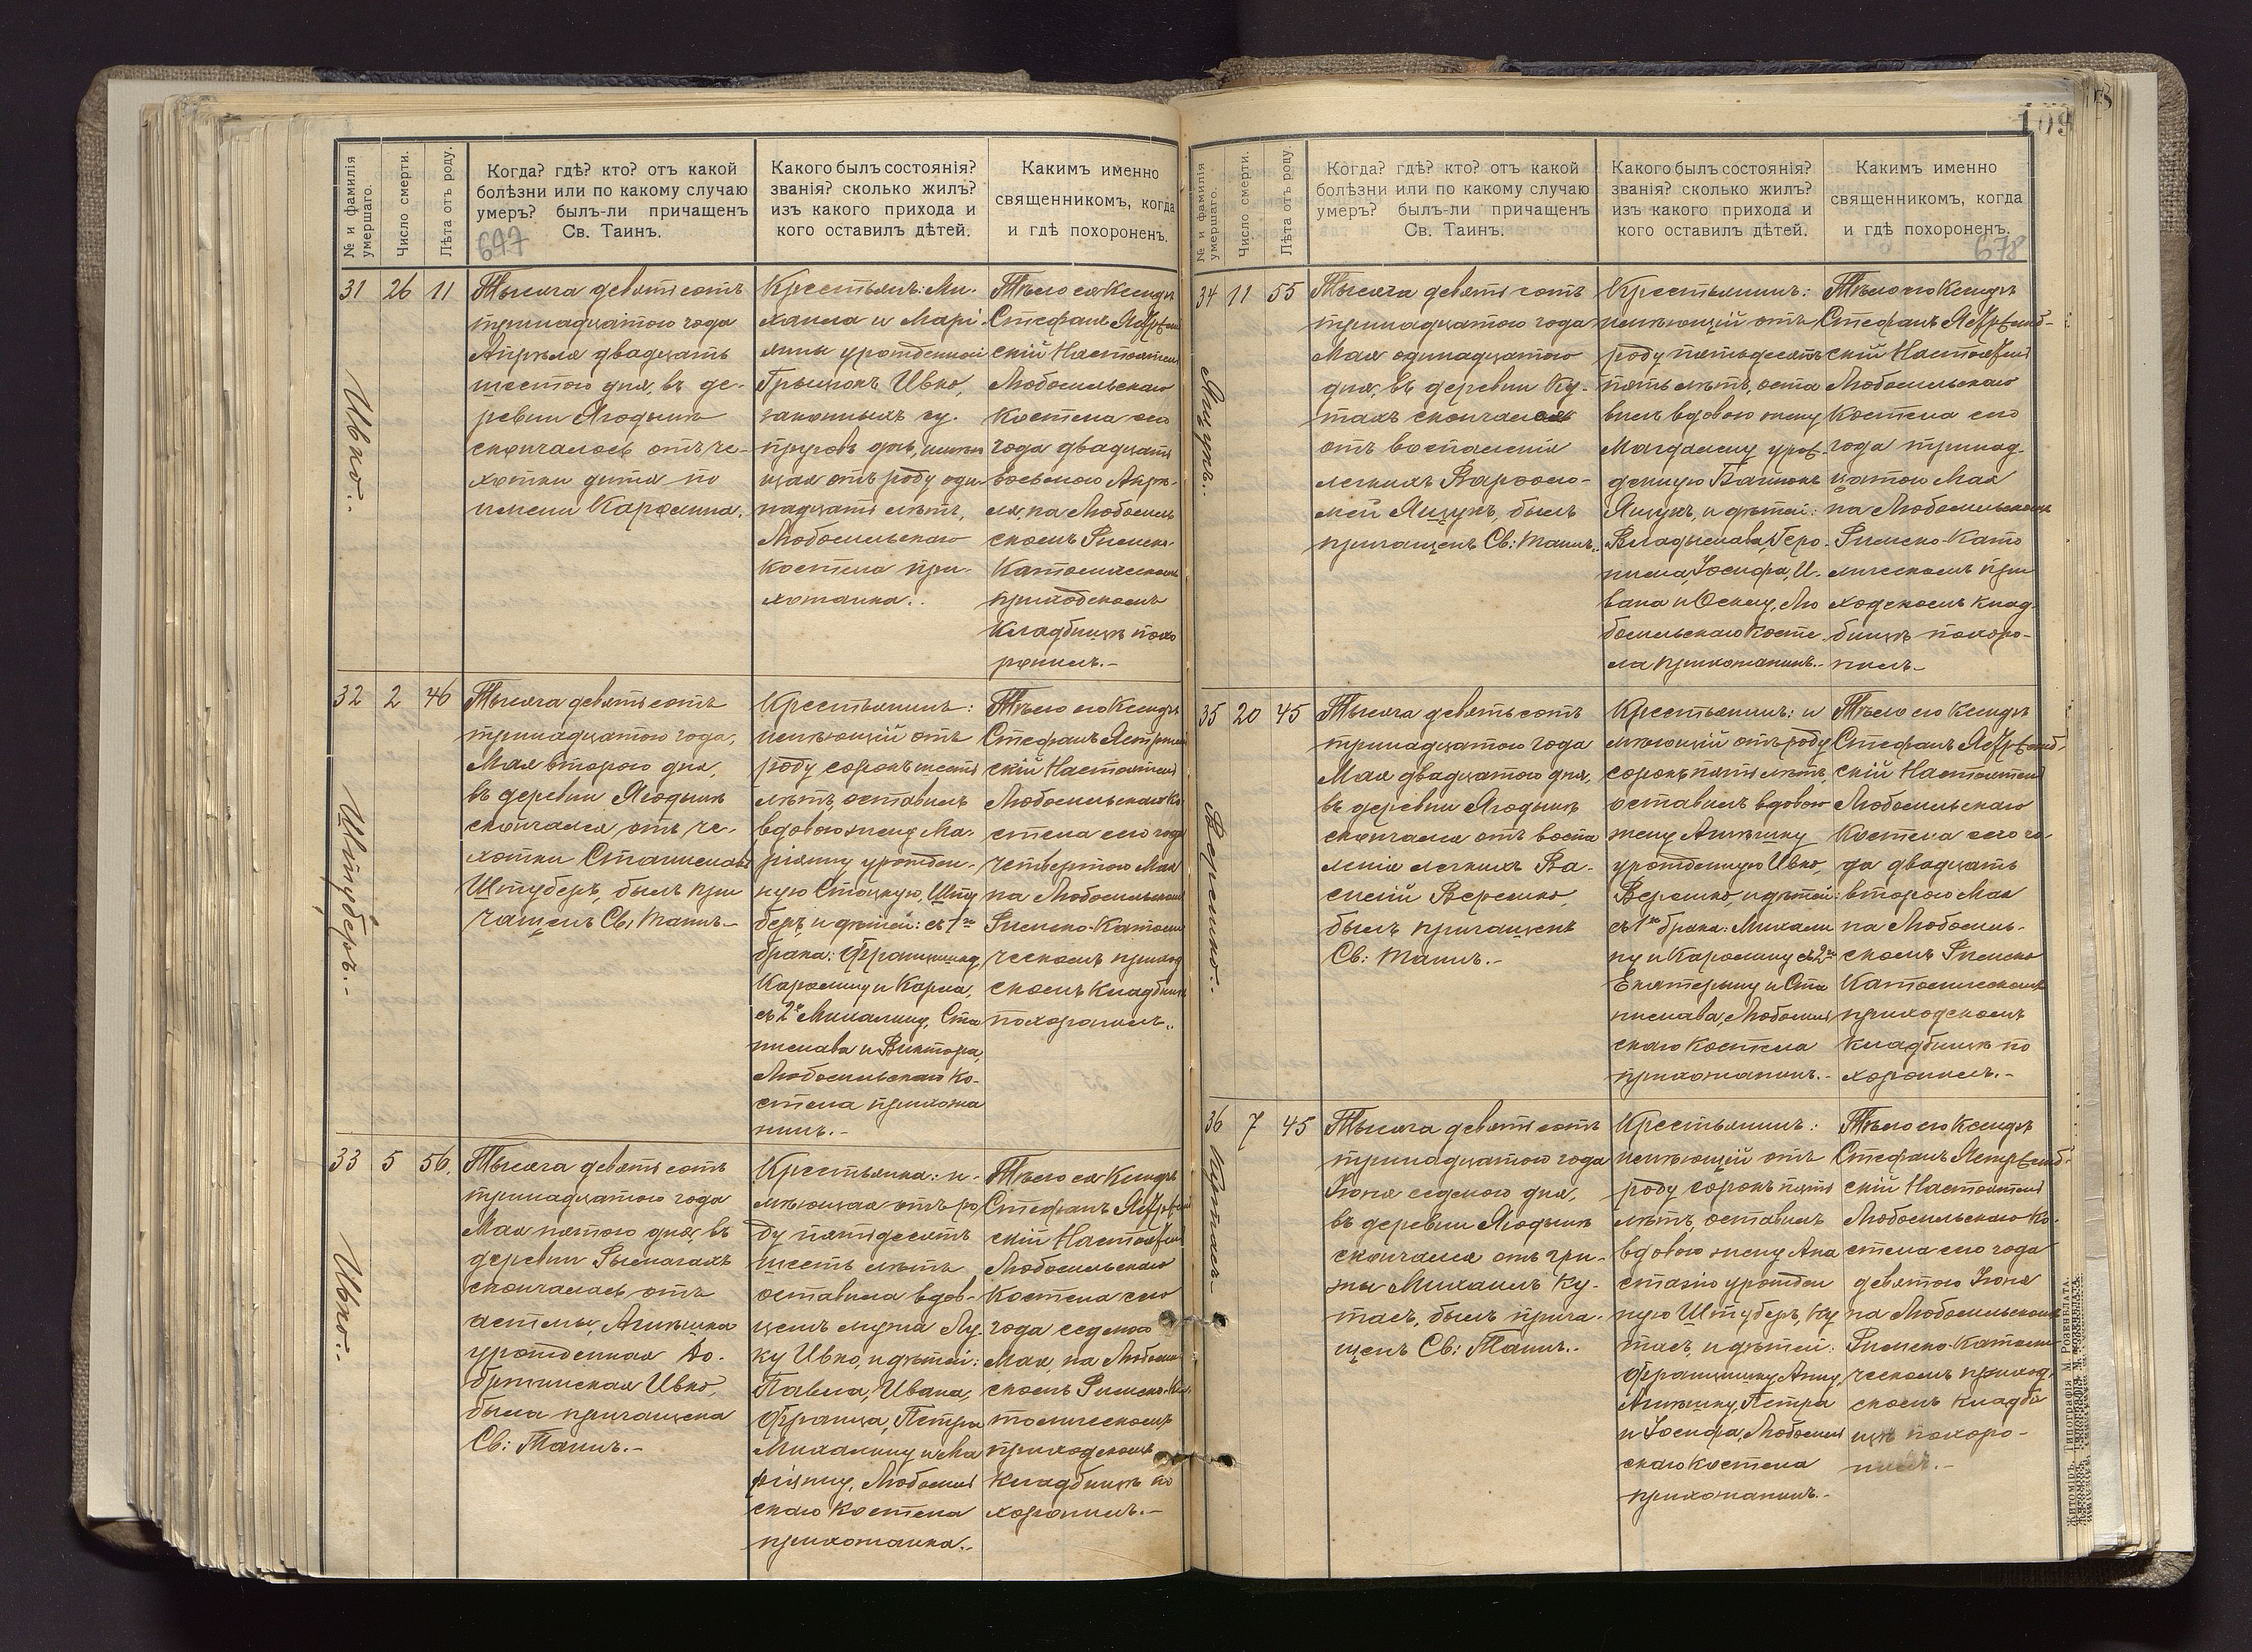 № и фамилія умершаго.
Число смерти.
Лѣта отъ роду.
Когда? гдѣ? кто? отъ какой
болѣзни или по какому случаю
умеръ? былъ-ли причащенъ
Св. Таинъ.
647
Какого былъ состоянія?
званія? сколько жилъ?
изъ какого прихода и
кого оставилъ дѣтей.
Какимъ именно
священникомъ, когда
и гдѣ похороненъ.
31
Ивко.
26
11
Тысяча девятьсотъ
тринадцатого года
Апрѣля двадцать
шестого дня, въ де-
ревни Ягодынѣ
скончалось отъ че-
хотки дитя по
имени Каролина.
Крестьянъ: Ми-
хаила и Марі-
янны урожденной
Грыцюкъ Ивко,
законныхъ су-
пруговъ дчь, имѣю
щая отъ роду оди-
надцать лѣтъ,
Любомльскаго
костела при-
хожанка.
Тѣло ея Ксендзъ
Стефанъ
скій Настоятель
Любомльскаго
Костела сего
года двадцать
восьмого Апрѣ-
ля, на Любомль
скомъ Римско-
Католическомъ
приходскомъ
кладбищѣ похо
ронилъ.-
32
Штуберъ.-
2
46
Тысяча девятьсотъ
тринадцатого года,
Мая второго дня,
въ деревни Ягодынѣ
скончался отъ че-
хотки Станиславъ
Штуберъ, былъ при
чащенъ Св. Таинъ-
Крестьянинъ:
имѣющій отъ
роду сорокъ шесть
лѣтъ, оставилъ
вдовою жену Ма-
ріянну урожден-
ную Стоцкую, Шту
беръ и дѣтей: съ 1го
брака: Францишку,
Каролину и Карла,
съ 2о Михалину, Ста
нислава и Виктора,
Любомльскаго ко-
стела прихожа
нинъ.-
Тѣло его Ксендзъ
Стефанъ
скій Настоятель
Любомльскаго Ко
стела сего года
четвертого Мая
на Любомльскомъ
Римско-Католи
ческомъ приход
скомъ кладбищѣ
похоронилъ.
33
Ивко.-
5
56.
Тысяча девятьсотъ
тринадцатого года
Мая пятого дня, въ
деревни Рымачахъ
скончалась отъ
астмы, Агнѣшка
урожденная До-
бротинская Ивко,
была причащена
Св: Таинъ.-
Крестьянка: и-
мѣющая отъ ро
ду пятьдесятъ
шесть лѣтъ
оставила вдов-
цемъ мужа Лу-
ку Ивко, и дѣтей:
Павла, Ивана,
Франца, Петра
Михалину и Ма
ріянну, Любомль
скаго Костела
прихожанка.-
Тѣло ея Ксендзъ
Стефанъ
скій Настоятель
Любомльскаго
Костела сего
года седьмого
Мая, на Любомль
скомъ Римско-Ка
толическомъ
приходскомъ
кладбищѣ по
хоронилъ.-
109
№ и фамилія умершаго.
Число смерти.
Лѣта отъ роду.
Когда? гдѣ? кто? отъ какой
болѣзни или по какому случаю
умеръ? былъ-ли причащенъ
Св. Таинъ.
Какого былъ состоянія?
званія? сколько жилъ?
изъ какого прихода и
кого оставилъ дѣтей.
Какимъ именно
священникомъ, когда
и гдѣ похороненъ.
678
34
Ящукъ.
11
55
Тысяча девятьсотъ
тринадцатого года
Мая одинадцатого
дня, въ деревни Ку-
тахъ скончался
отъ воспаленія
легкихъ Варфоло-
мей Ящукъ, былъ
причащенъ Св: Таинъ.
Крестьянинъ:
имѣющій отъ
роду пятьдесятъ
пять лѣтъ, оста
вилъ вдовою жену
Магдалену урож-
денную
Ящукъ, и дѣтей:
Владыслава, Геро-
нима, Іосифа, И-
вана и Осипу, Лю
бомльскаго косте
ла прихожанинъ.-
Тѣло его Ксендзъ
Стефанъ
скій Настоятель
Любомльскаго
Костела сего
года тринад-
цатого Мая
на Любомльскомъ
Римско-Като
лическомъ при
ходскомъ клад-
бищѣ похоро-
нилъ-
35
Веремко.
20
45
Тысяча девятьсотъ
тринадцатого года
Мая двадцатого дня,
въ деревни Ягодынѣ
скончался отъ воспа
ленія легкихъ Ва-
силій Веремко,
былъ причащенъ
Св: Таинъ.-
Крестьянинъ: и
мѣющій отъ роду
сорокъ пять лѣтъ,
оставилъ вдовою
жену Агнѣшку
урожденную Ивко,
Веремко, и дѣтей:
съ 1го брака: Михали
ну и Каролину съ 2го
Екатерину и Ста
нислава, Любомль
скаго Костела
прихожанинъ.-
Тѣло его Ксендзъ
Стефанъ
скій Настоятель
Любомльскаго
Костела сего го
да двадцать
второго Мая
на Любомль-
скомъ Римско
Католическомъ
приходскомъ
кладбищѣ по
хоронилъ.-
36
Кутасъ
7
45
Тысяча девятьсотъ
тринадцатого года
Іюня седьмого дня,
въ деревни Ягодынѣ
скончался отъ гри-
пы Михаилъ Ку-
тасъ, былъ прича-
щенъ Св: Таинъ.-
Крестьянинъ:
имѣющій отъ
роду сорокъ пять
лѣтъ, оставилъ
вдовою жену Ана
стазію урожден
ную Штуберъ, Ку
тасъ, и дѣтей:
Францишку, Анну,
Агнѣшку, Петра
и Іосифа, Любомль
скаго Костела
прихожанинъ.-
Тѣло его Ксендзъ
Стефанъ
скій Настоятель
Любомльскаго Ко-
стела сего года
девятого Іюня
на Любомльскомъ
Римско-Католи
ческомъ приход-
скомъ кладби
щѣ похоро-
нилъ.-
Житоміръ. Типографія М. Розенблата.